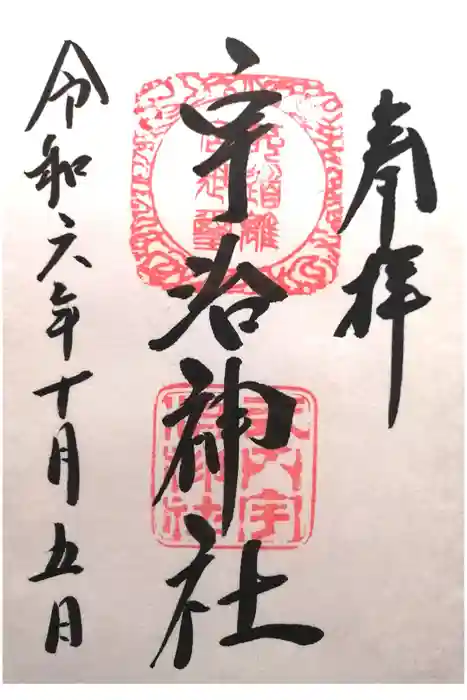 奉拝
宇治神社
令和六年十月五日
式内宇
治神社